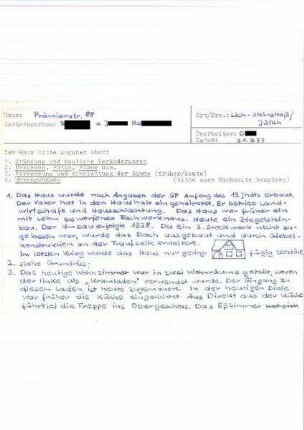 Haus: Prämienstr. 88
Ort/Krs.: Lich-Steinstraß/
Gewährsperson: B u. J Ha
Jülich
Bearbeiter: D
Datum: 21.9.77
Zum Haus bitte Angaben über:
1. Gründung und bauliche Veränderungen
2. Urkunden, Fotos, Pläne usw.
3. Verwendung und Einrichtung der Räume (früher/heute)
4. (bitte auch Rückseite benutzen)
1. Das Haus wurde nach Angaben der GP Anfang des 19. Jhdts erbaut.
Der Vater hat in den Haushalt eingeheiratet. Er betrieb Land-
wirtschaft und Hausschlachtung. Das Haus war früher ein
mit Lehm beworfenes Fachwerkhaus. Heute ein Ziegelstein-
bau. Der Umbau erfolgte 1928. Da ein 2. Stockwerk nicht zu-
gelassen war, wurde das Dach ausgebaut und durch Giebel-
konstruktion an der Traufseite erweitert.
Im letzten Krieg wurde das Haus nur gering-fügig zerstört.
2. siehe Grundriß.
3. Das heutige Wohnzimmer war in zwei Wohnräume geteilt, wovon
der linke als "Kramladen" verwendet wurde. Der Eingang zu
diesem Laden ist heute zugemauert. In der heutigen Diele
war früher die Küche eingerichtet. Direkt aus der Küche
führte die Treppe ins Obergeschoss. Das Eßzimmer